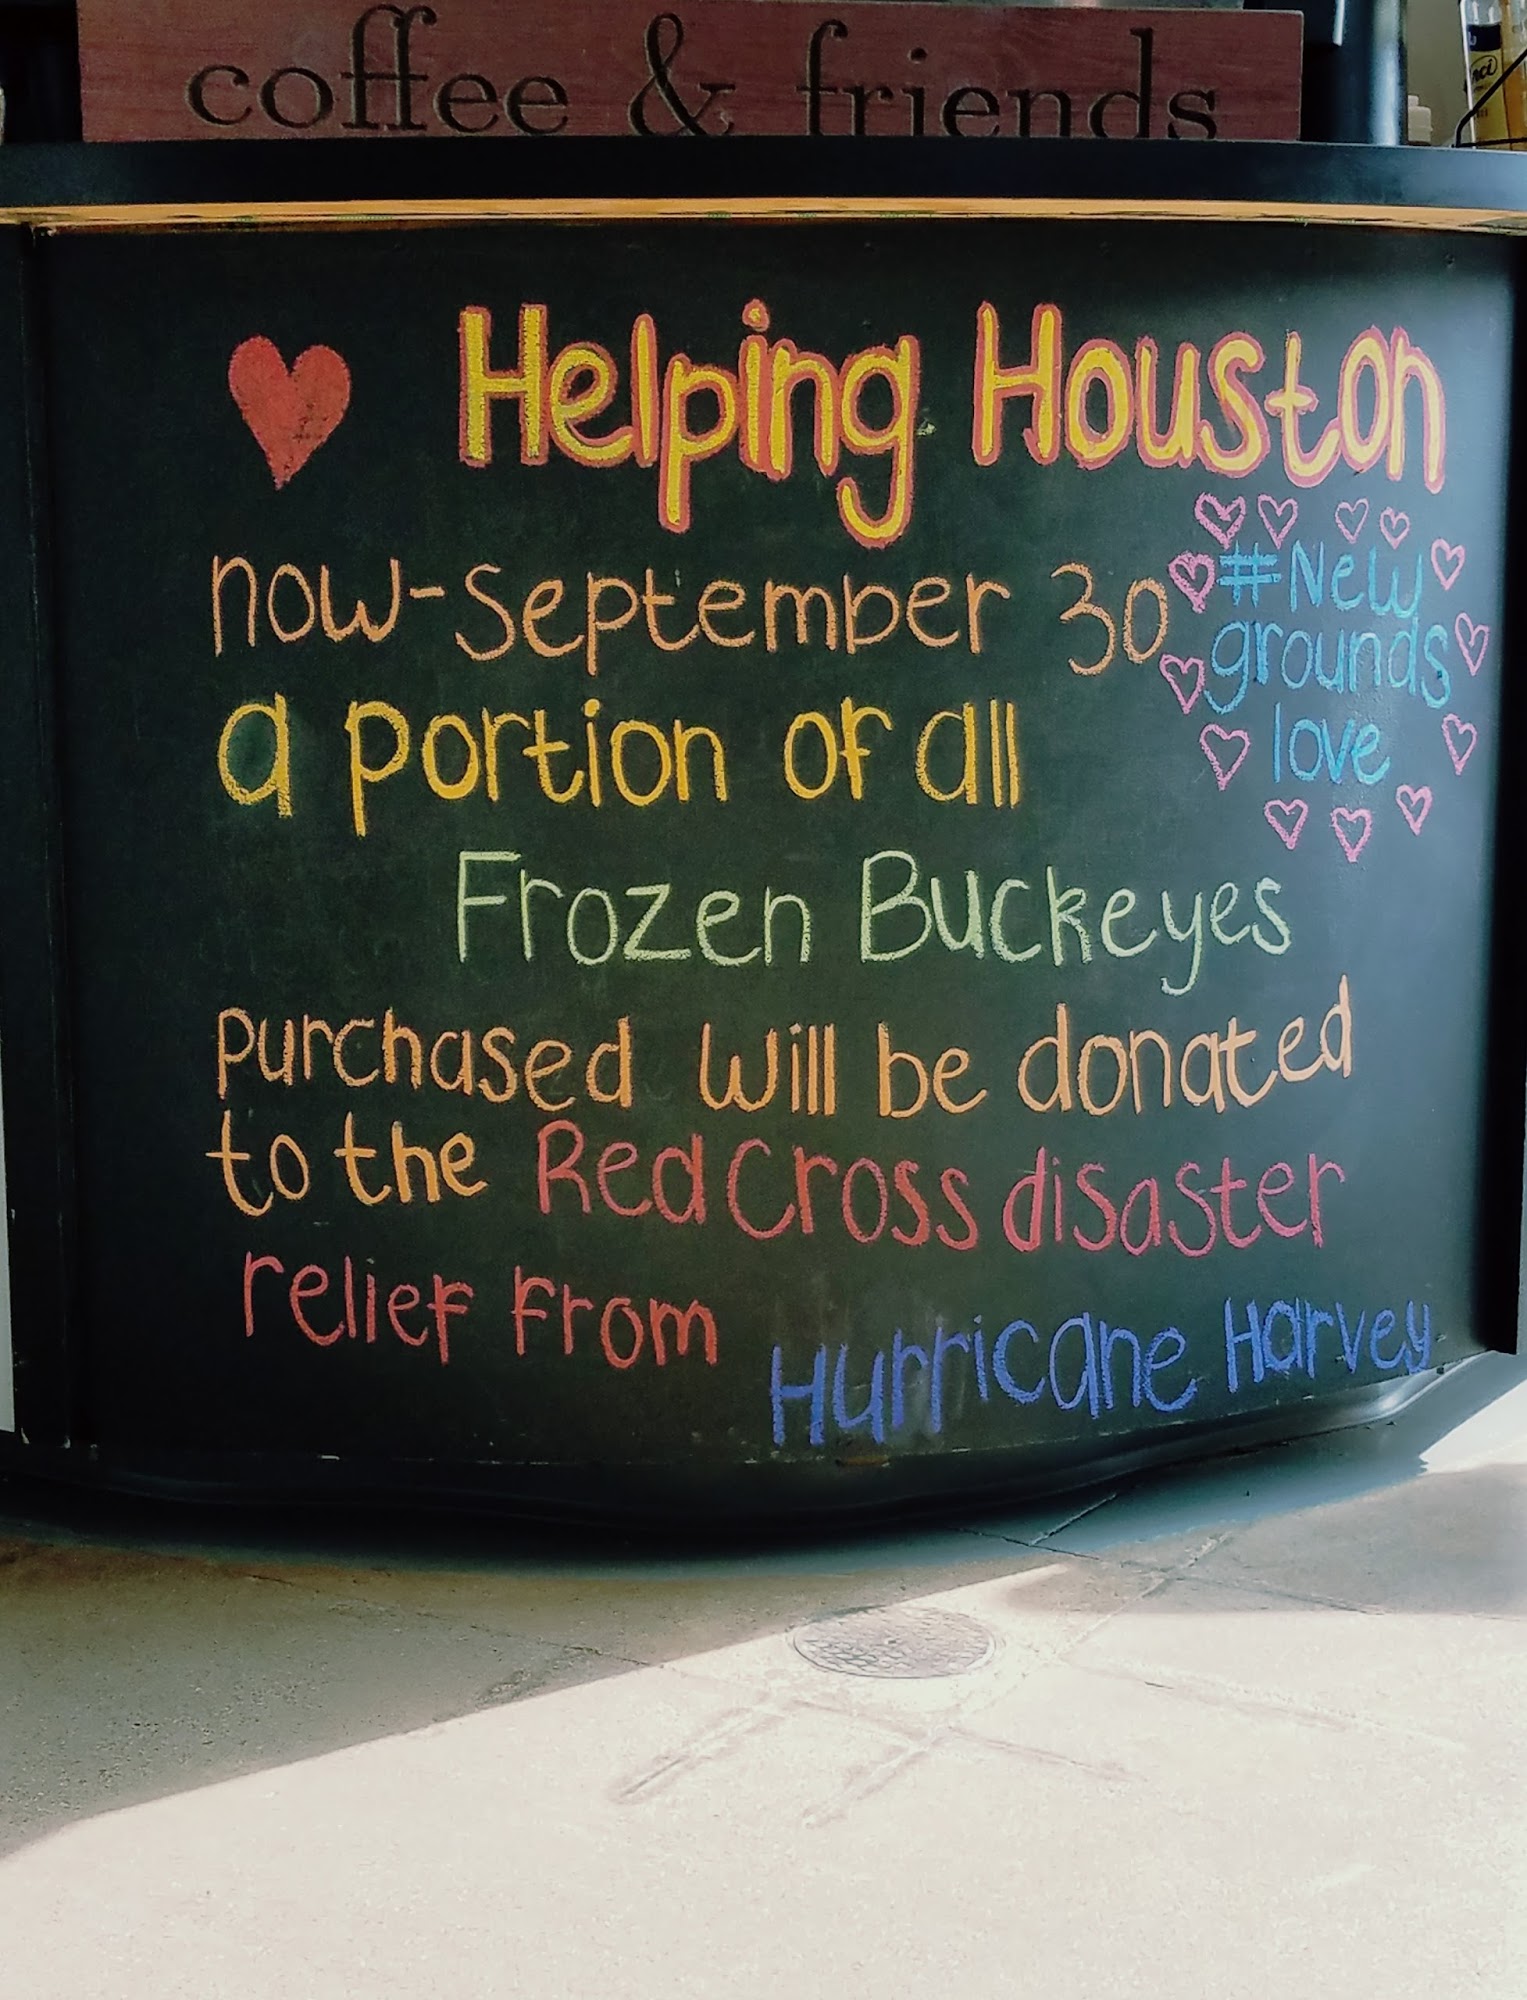 coffee & friends
Helping Houston
now-September 30
#New
grounds
love
a portion of all
Frozen Buckeyes
purchased will be donated
to the Red Cross disaster
relief from
Hurricane Harvey